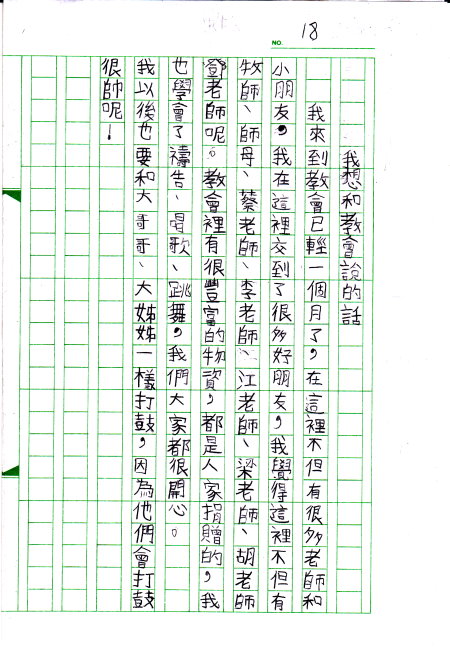 NO. 18
我想和教會說的話
我來到教會已輕一個月了，在這裡不但有很多老師和
小朋友，我在這裡交到了很多好朋友，我覺得這裡不但有
牧師、師母、蔡老師、李老師、江老師、梁老師、胡老師
鄧老師呢。教會裡有很豐富的物資，都是人家捐贈的，我
也學會了禱告、唱歌、跳舞，我們大家都很開心。
我以後也要和大哥哥、大姊姊一樣打鼓，因為他們會打鼓
很帥呢！